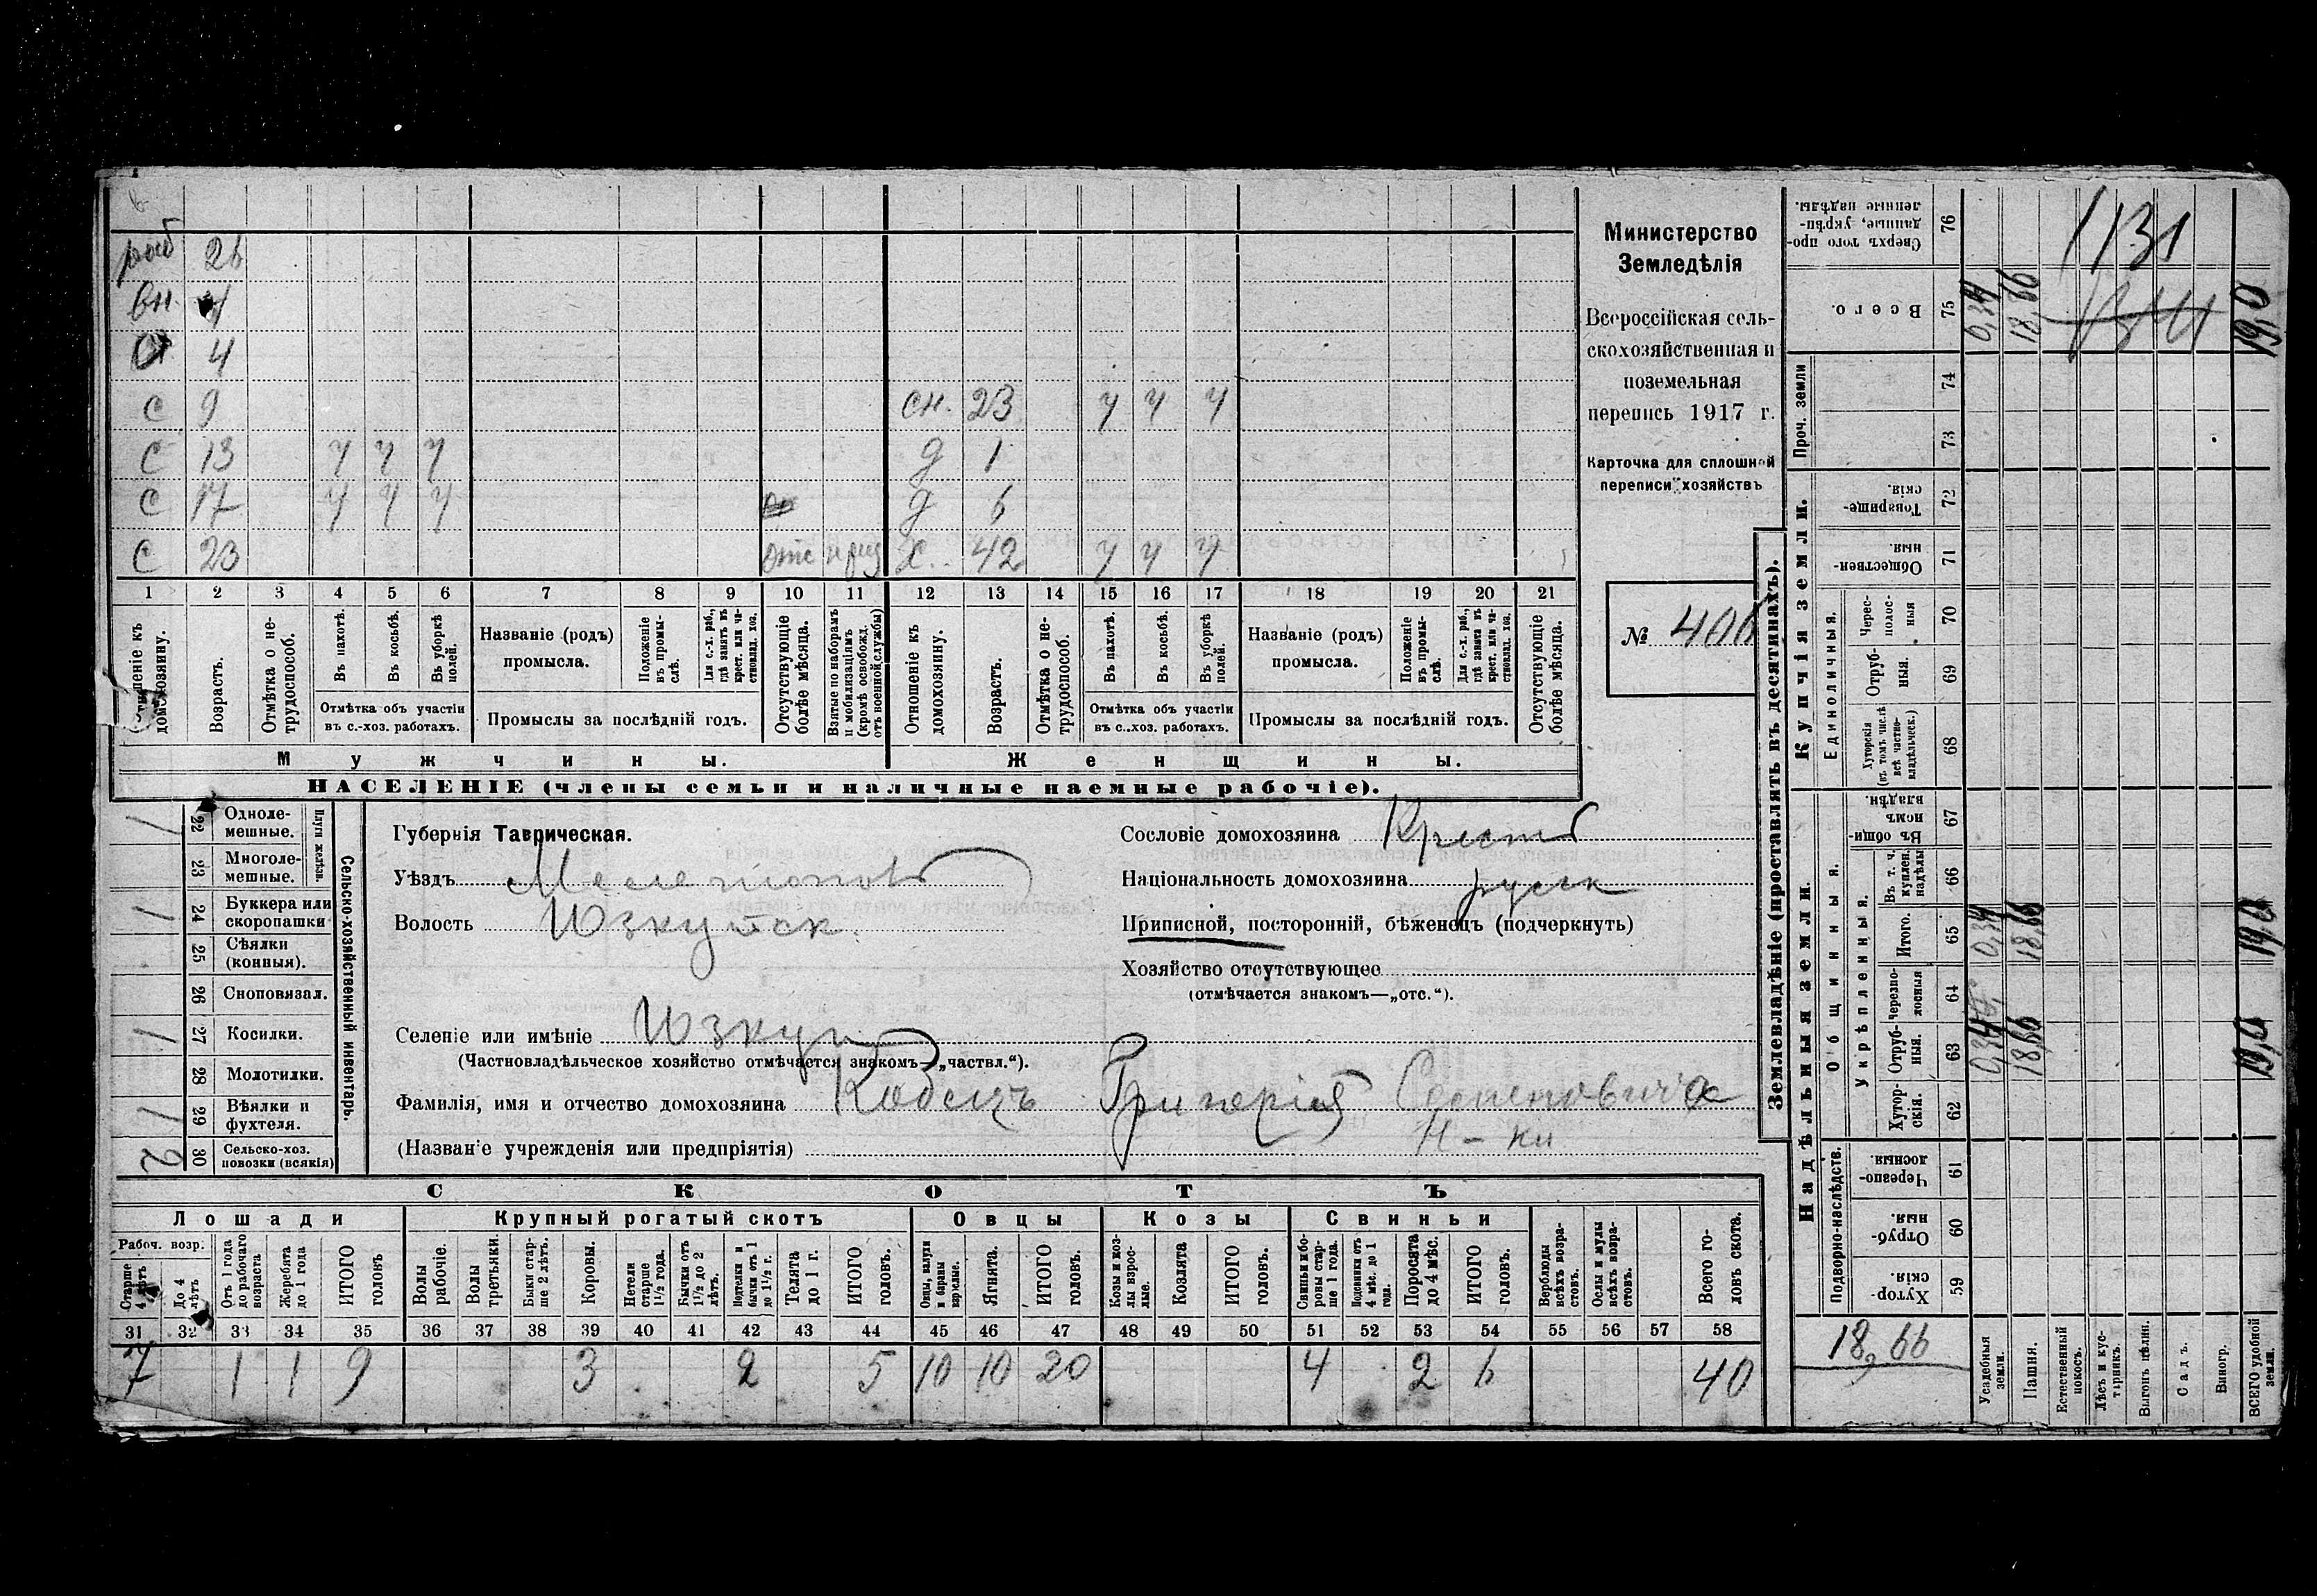 раб 26
вн. 4
С 4
С 9 сн. 23 ч ч ч
С 13 ч ч ч д 1
С 17 ч ч ч д 6
С 23 отс х. 42 ч ч ч
1 2 3 4 5 6 7 8 9 10 11 12 13 14 15 16 17 18 19 20 21
домохозяину.
Возрастъ.
Отмѣтка о нетрудоспособ.
Въ пахотѣ.
Въ косьбѣ.
Въ уборкѣ полей.
Отмѣтка объ участіи въ с.-хоз. работахъ.
Названіе (родъ) промысла.
Положеніе въ промыслѣ.
Для с.-х. раб., гдѣ занятъ въ крест. или частновлад. хоз.
Промыслы за послѣдній годъ.
Отсутствующіе болѣе мѣсяца.
Взятые по наборамъ и мобилизаціямъ (кромѣ освобожд. отъ военной службы)
Отношеніе къ домохозяину.
Возрастъ.
Отмѣтка о нетрудоспособ.
Въ пахотѣ.
Въ косьбѣ.
Въ уборкѣ полей.
Отмѣтка объ участіи въ с.-хоз. работахъ.
Названіе (родъ) промысла.
Положеніе въ промыслѣ.
Для с.-х. раб., гдѣ занята въ крест. или частновлад. хоз.
Промыслы за послѣдній годъ.
Отсутствующіе болѣе мѣсяца.
Мужчины. Женщины.
НАСЕЛЕНІЕ (члены семьи и наличные наемные рабочіе).
Министерство
Земледѣлія
Всероссійская сель-
скохозяйственная и
поземельная
перепись 1917 г.
Карточка для сплошной
переписи хозяйствъ
№ 406
1 22 Однолемешные.
23 Многолемешные.
Плуги желѣзн.
1 24 Буккера или скоропашки
25 Сѣялки (конныя).
26 Сноповязал.
1 27 Косилки.
28 Молотилки.
1 29 Вѣялки и фухтеля.
2 30 Сельско-хоз. повозки (всякія)
Сельско-хозяйственный инвентарь.
Губернія Таврическая.
Уѣздъ
Волость Юзкуйск.
Селеніе или имѣніе Юзкуи
(Частновладѣльческое хозяйство отмѣчается знакомъ—„частвл.“).
Фамилія, имя и отчество домохозяина Кобецъ Григорій Семеновича
Н-ки
(Названіе учрежденія или предпріятія)
Сословіе домохозяина Крест
Національность домохозяина русск
Приписной, посторонній, бѣженецъ (подчеркнуть)
Хозяйство отсутствующее
(отмѣчается знакомъ—„отс.“).
СКОТЪ
Лошади Крупный рогатый скотъ Овцы Козы Свиньи
Рабоч. возр.
Старше 4 лѣтъ
До 4 лѣтъ
Отъ 1 года до рабочаго возраста
Жеребята до 1 года
ИТОГО головъ
Волы рабочіе.
Волы третьяки.
Быки старше 2 лѣтъ.
Коровы.
Нетели старше 1½ года.
Бычки отъ 1½ до 2 лѣтъ.
Подтелки и бычки отъ 1 до 1½ г.
Телята до 1 г.
ИТОГО головъ.
Овцы, валухи и бараны взрослые.
Ягнята.
ИТОГО головъ.
Козы и козлы взрослые.
Козлята
ИТОГО головъ.
Свиньи и боровы старше 1 года.
Подсвинки отъ 4 мѣс. до 1 года.
Поросята до 4 мѣс.
ИТОГО головъ.
Верблюды всѣхъ возрастовъ.
Ослы и мулы всѣхъ возрастовъ.
Всего головъ скота.
31 32 33 34 35 36 37 38 39 40 41 42 43 44 45 46 47 48 49 50 51 52 53 54 55 56 57 58
7 1 1 9 3 2 5 10 10 20 4 2 6 40
Землевладѣніе (проставлять въ десятинахъ).
Надѣльныя земли. Купчія земли. Проч. земли
Подворно-наслѣдств.
Общинныя.
Укрѣпленныя.
Единоличныя.
Хуторскія 59
Отрубныя. 60
Черезполосныя. 61
Хуторскія. 62
Отрубныя. 63 0,34 18,66 19,0
Черезполосныя 64
Итого. 65 0,34 18,66 19,0
Въ т. ч. куплен. надѣлы 66
Въ общинномъ владѣн. 67
Хуторскія (въ томъ числѣ всѣ частновладѣльческ.) 68
Отрубныя. 69
Черезполосныя 70
Общественныя. 71
Товарищескія. 72
73
74
Всего. 75 0,34 18,66 19,0
Сверхъ того проданные, укрѣпленные надѣлы. 76
1131
18,66
Усадебныя земли.
Пашня.
Естественный покосъ.
Лѣсъ и кустарникъ.
Выгонъ цѣлин.
Садъ.
Виногр.
ВСЕГО удобной земли.